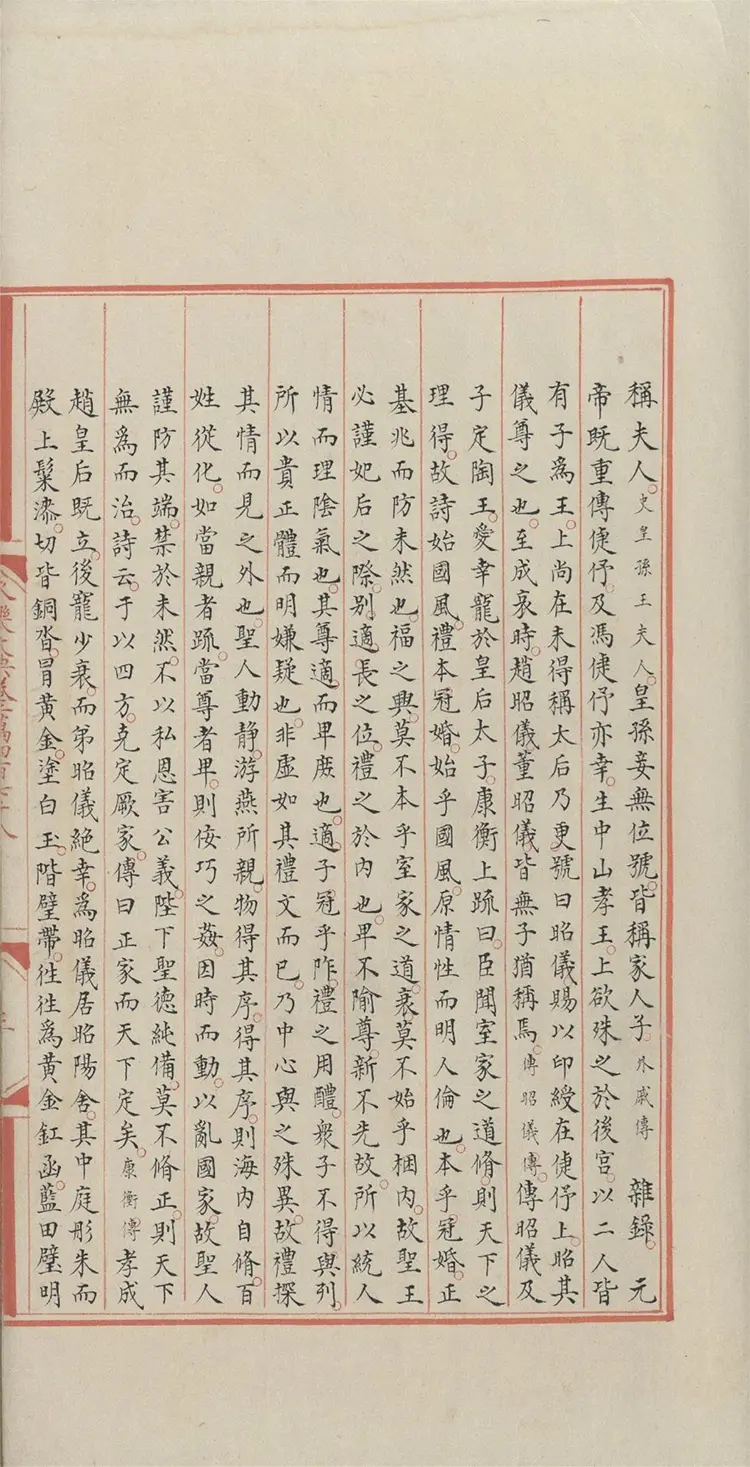 稱夫人。史皇孫王夫人。皇孫妾無位號。皆稱家人子。外戚傳 雜錄。元
帝既重傅倢伃。及馮倢伃亦幸。生中山孝王。上欲殊之於後宮。以二人皆
有子爲王。上尚在未得稱太后乃更號曰昭儀賜以印綬在倢伃上。昭其
儀尊之也。至成哀時。趙昭儀董昭儀皆無子猶稱焉。傅昭儀傳。傅昭儀及
子定陶王。愛幸寵於皇后太子。康衡上疏曰。臣聞室家之道脩。則天下之
理得。故詩始國風。禮本冠婚。始乎國風。原情性而明人倫也。本乎冠婚。正
基兆而防未然也。福之興。莫不本乎室家之道。衰莫不始乎梱內。故聖王
必謹妃后之際。別適長之位。禮之於內也。卑不隃尊。新不先故。所以統人
情而理陰氣也。其尊適而卑庶也。適子冠乎阼。禮之用醴。衆子不得與列。
所以貴正體而明嫌疑也。非虛如其禮文而已。乃中心與之殊異。故禮探
其情而見之外也。聖人動靜。游燕所親。物得其序。得其序。則海內自脩。百
姓從化。如當親者疏。當尊者卑。則佞巧之姦。因時而動。以亂國家。故聖人
謹防其端。禁於未然。不以私恩害公義。陛下聖德純備。莫不脩正。則天下
無爲而治。詩云。于以四方。克定厥家。傳曰正家而天下定矣。康衡傳 孝成
趙皇后既立。後寵少衰。而弟昭儀絶幸。爲昭儀居昭陽舍。其中庭彤朱而
殿上髹漆。切皆銅沓。冒黃金。塗白玉。階壁帶。徃徃爲黃金釭函。藍田璧明